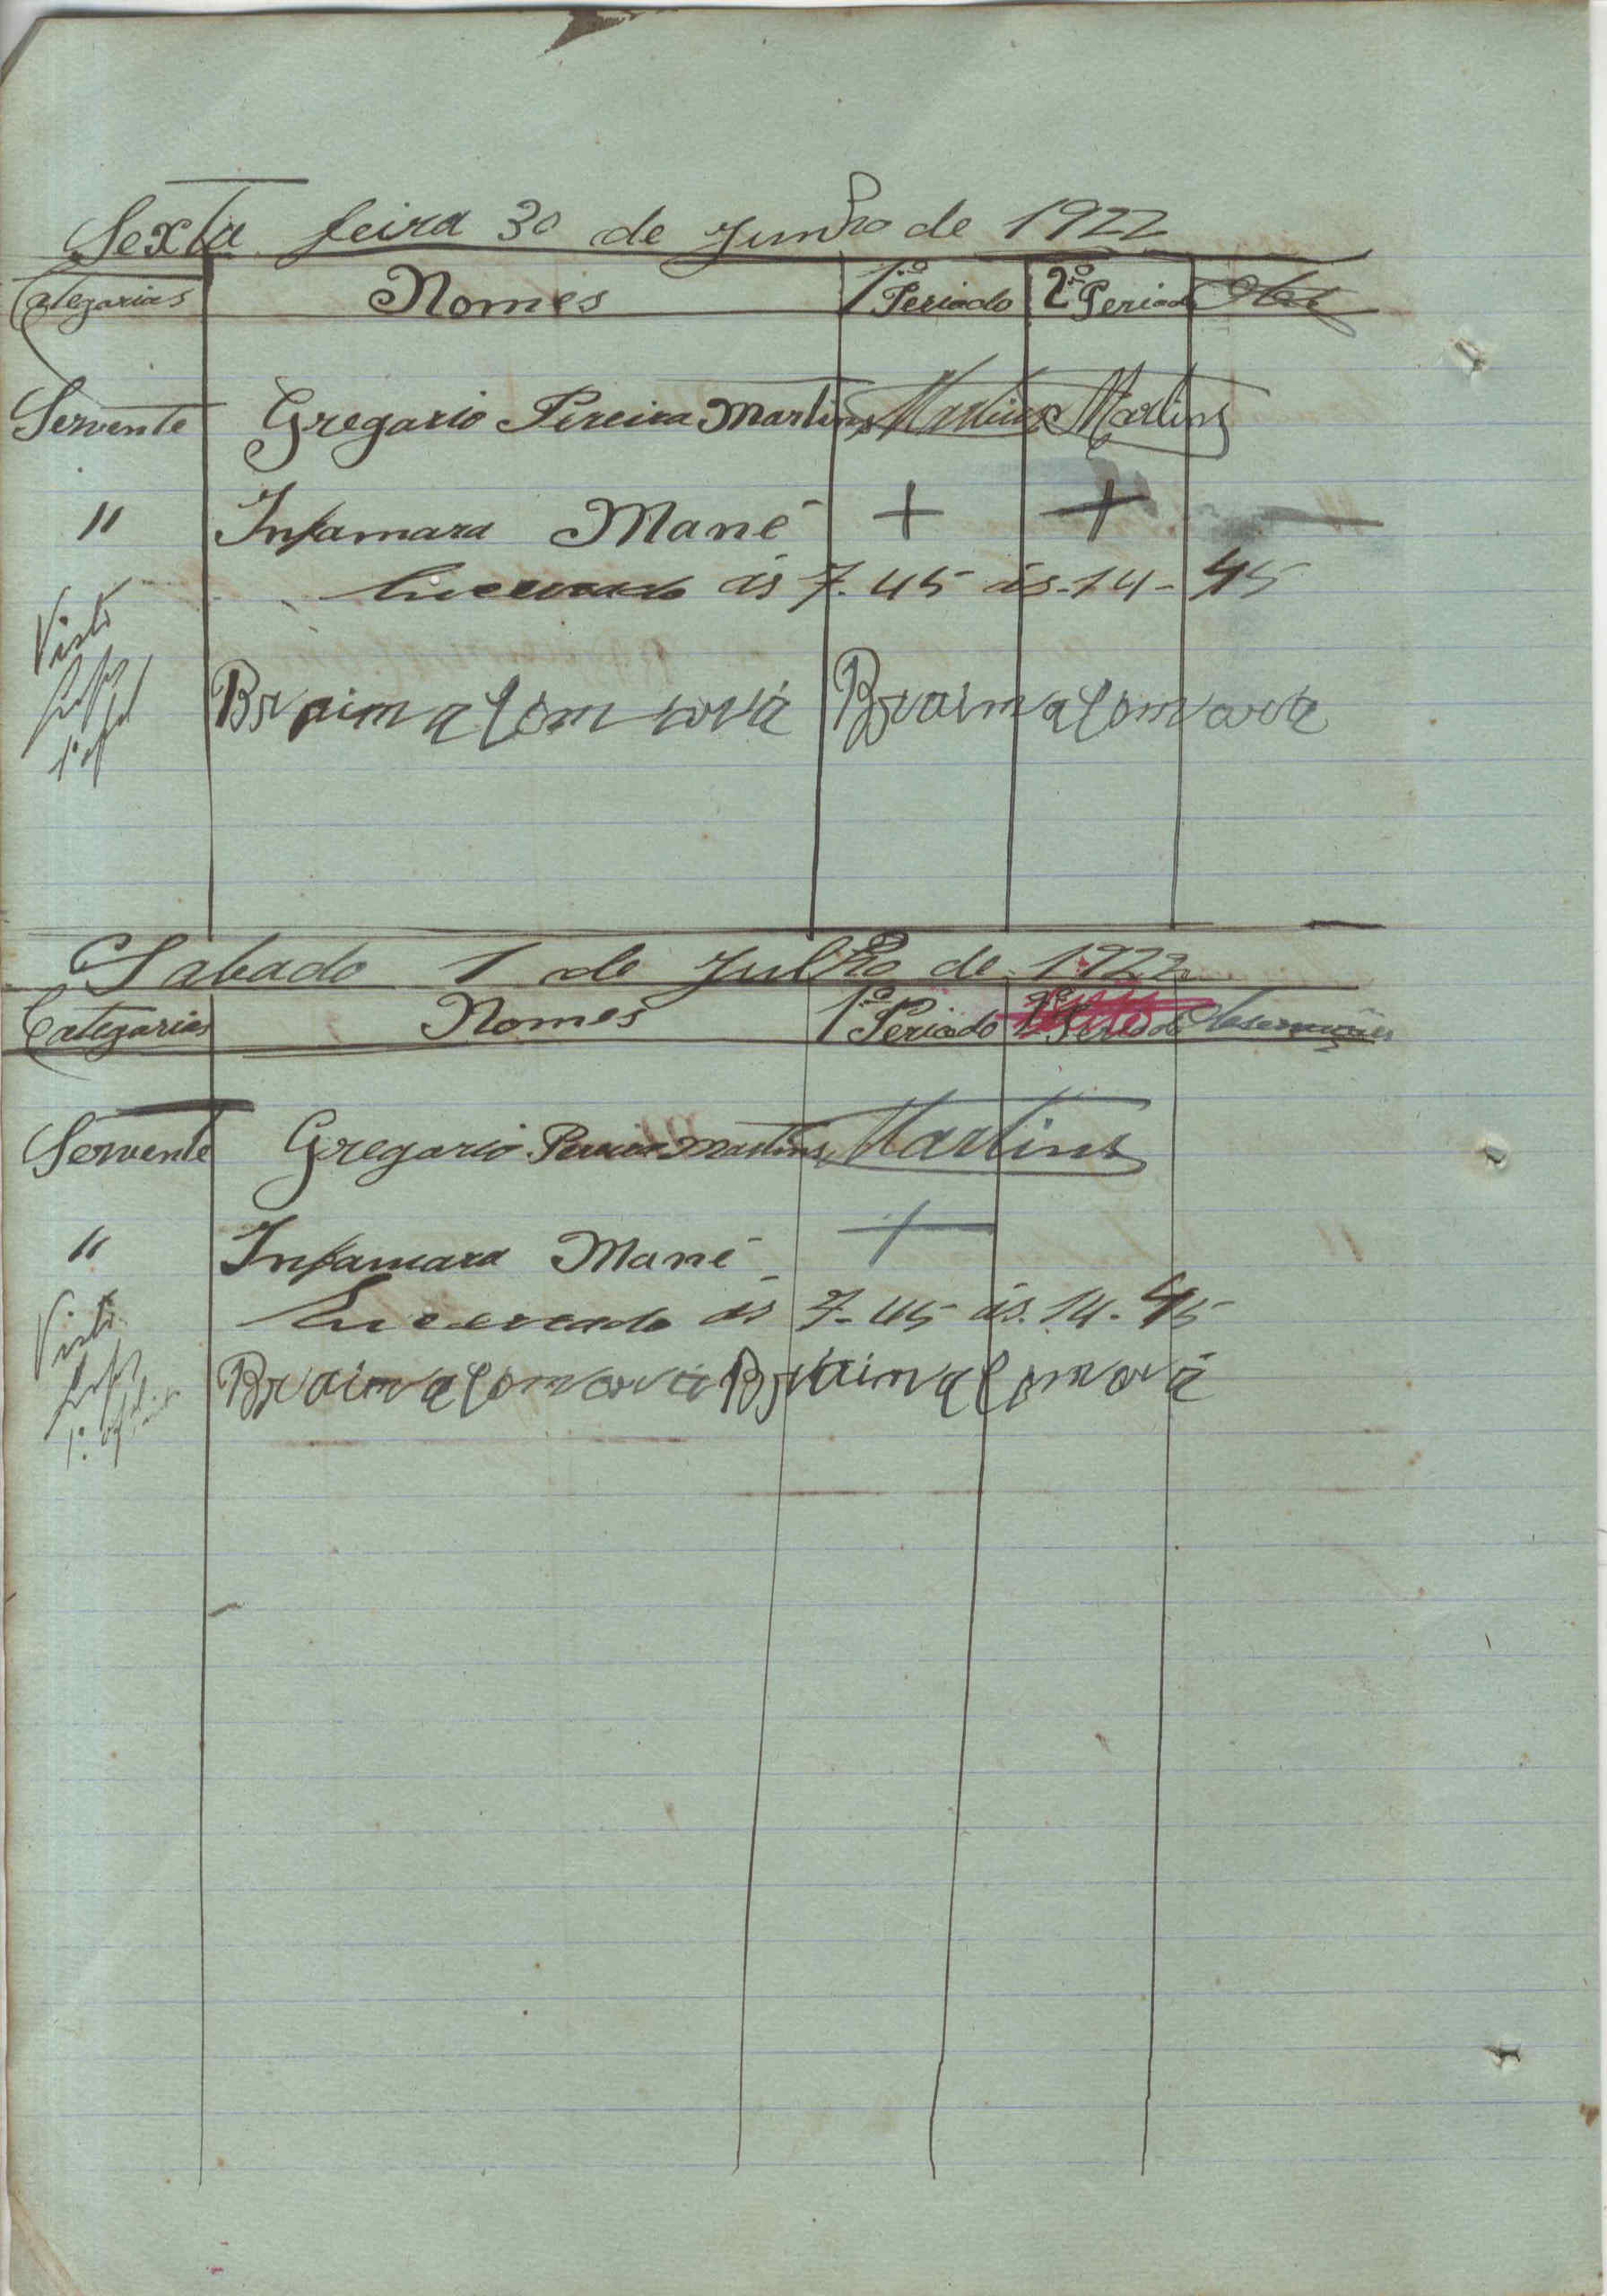 Sexta feira 30 de Junho de 1922
Categorias Nomes 1º Periodo 2º Periodo Obs
Servente Gregario Pereira Martins Martins Martins
" Infamara Mané + +
Encerrado ás 7.45 ás.14-45
Visto
Braima Com Braima Com
Sabado 1 de Julho de 1922
Categorias Nomes 1º Periodo 2º Periodo Observações
Servente Gregario Pereira Martins Martins
" Infamara Mané +
Encerrado ás 7-45 ás.14.45
Visto
Braima Com Braima Com